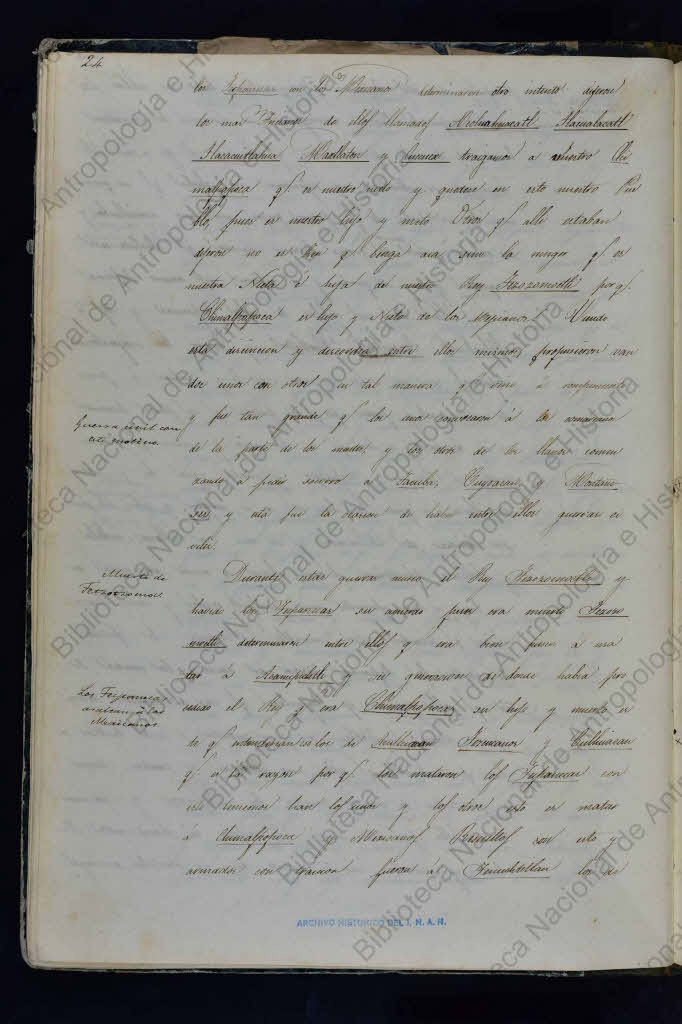 24
los Tepanecas con los Mexicanos determinaron otro intento dijeron
los mas Ancianos de ellos llamados Acolnahuacatl Tlacualacatl
Tlacacuitlahua Maxtlaton y Cuecuex traigamos á nuestro Chi
malpopoca qᵉ es nuestro nieto y quedese en este nuestro Pue
blo, pues es nuestro hijo y nieto Otros qᵉ alli estaban
dijeron no es bien q benga aca sino la muger qᵉ es
nuestra Nieta é hija de nuestro Rey Tezozomoctli por qᵉ
Chimalpopoca es hijo y Nieto de los Mexicanos. Viendo
esta discencion y discordia entre ellos mismos propusieron van
dos unos con otros en tal manera qᵉ vino á rompimiento
y fue tan grande qᵉ los unos comenzaron á
de la parte de los montes y los otros de los llanos comen
zando á pedir socorro á Tacuba, Cuyoacan y
y esta fue la ocasion de haber entre ellos guerras ci
viles.
Guerra civil con
este motivo.
Durante estas guerras murio el Rey Tezozomoctli y
havido los Tepanecas su acuerdo pues era muerto Tezozo
moctli determinaron entre ellos q era bien fuesen á ma
tar á Acamapichtli y su generacion de donde habia pro
cedido el Rey q era Chimalpopoca su hijo y muerto es
te qᵉ entenderian se los de Culhuacan
qᵉ es la razon por qᵉ los mataron los Tepanecas con
este temor unos y los otros esto es matar
á Chimalpopoca y Mexicanos Resueltos con esto y
armados con traicion fueron á Tenuchtitlan los de
Muerte de
Tezozomoc.
Los Tepanecas
asaltan á los
Mexicanos
ARCHIVO HISTORICO DEL I. N. A. H.
Biblioteca Nacional de Antropología e Historia